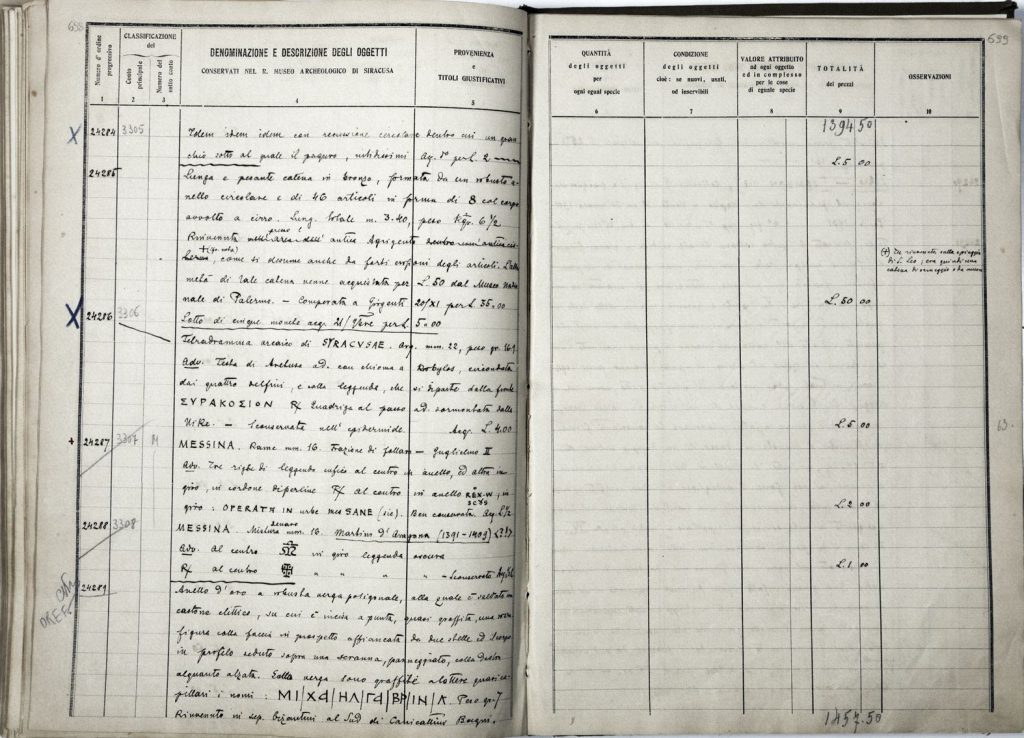 698
CLASSIFICAZIONE
del
Numero d'ordine progressivo
Conto principale
Numero del sotto conto
DENOMINAZIONE E DESCRIZIONE DEGLI OGGETTI
CONSERVATI NEL R. MUSEO ARCHEOLOGICO DI SIRACUSA
PROVENIENZA
e
TITOLI GIUSTIFICATIVI
1 2 3 4 5
X 24284 3305 Idem idem idem con recensione circolare dentro cui un gran
chio sotto al quale il paguro, nitidissimi Aq. per L. 2
24285 Lunga e pesante catena in bronzo, formata da un robusto a-
nello circolare e di 46 articoli in forma di 8 col corpo
avvolto a cirro. Lung. totale m. 3.40, peso Kgr. 6 1/2
Rinvenuta presso l' antica Agrigento
(+) (v. nota)
come si desume anche da forti erosioni degli articoli. L'altra
metà di tale catena venne acquistata per L. 50 dal Museo Nazio
nale di Palermo. — Comperata a Girgenti 20/XI per L. 35.00
X 24286 3306 Lotto di cinque monete acq. 21/ per L. 5.00
Tetradramma arcaico di SYRACVSAE. Arg. mm. 22, peso gr.
Adv. Testa di Arethusa ad. con chioma a krobylos, circondata
dai quattro delfini, e colla leggenda, che si diparte dalla fronte
ΣΥΡΑΚΟΣΙΟΝ R/ Quadriga al passo ad. sormontata dalla
Nike. — Sconservata nell' epidermide. Acq. L. 4.00
+ 24287 3307 M MESSINA. Rame mm. 16. Frazione di follaro — Guglielmo II
Adv. Tre righe di leggenda cufica al centro in anello, ed altra in
giro, in cordone di perline R/ al centro in anello REX·W SCVS, in
giro: OPERATA IN urbe mesSANE (sic). Ben conservata. Aq. L. 1/2
24288 3308 MESSINA. Mistura denaro mm. 16. Martino d'Aragona (1391-1409)
Adv. Al centro in giro leggenda oscura
R/ al centro " " " " — Sconservata
OREF.
24289 Anello d'oro a robusta verga poligonale, alla quale è saldato un
castone elittico, su cui è incisa a punta, quasi graffita, una rozza
figura colla faccia in prospetto affiancata da due stelle ed
in profilo seduto sopra una scranna, panneggiato, colla destra
alquanto alzata. Sulla verga sono graffite a lettere quasi ca-
pillari i nomi: ΜΙ|ΧΑ|ΗΛ|ΓΑ|ΒΡ|ΙΝ|Α. Peso gr. 7
Rinvenuto in sep. bizantini al Sud di Canicattini Bagni.
699
QUANTITÀ
degli oggetti
per
ogni egual specie
CONDIZIONE
degli oggetti
cioè: se nuovi, usati,
od inservibili
VALORE ATTRIBUITO
ad ogni oggetto
ed in complesso
per le cose
di eguale specie
TOTALITÀ
dei prezzi
OSSERVAZIONI
6 7 8 9 10
1394 50
L. 5 00
(+) Da rinvenuta sulla spiaggia
di S. Leo; era quindi una
catena di ormeggio o da ancora
L. 50 00
L. 5 00
63.
L. 2 00
L. 1 00
1457.50